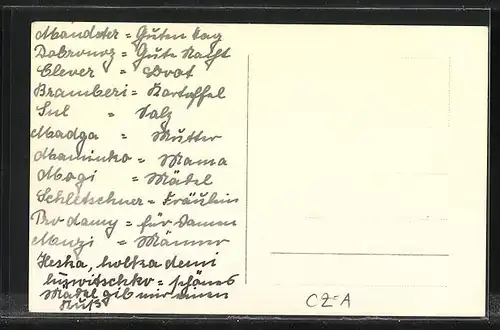 Mandeter = Guten Tag
Dobrounoz = Gute Nacht
Clever = Brot
Bramberi = Kartoffel
Sul = Salz
Madga = Mutter
Maminko = Mama
Mogi = Mädel
Schletschner = Fräulein
Pro damy = für Damen
Muzi = Männer
Heska, holka demi
huzwitschko = schönes
Mädel gib mir einen
Kuß
CZ-A